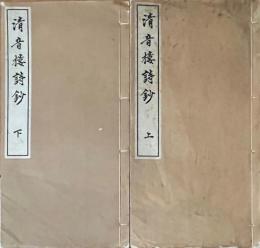 清音樓詩鈔 上
清音樓詩鈔 下